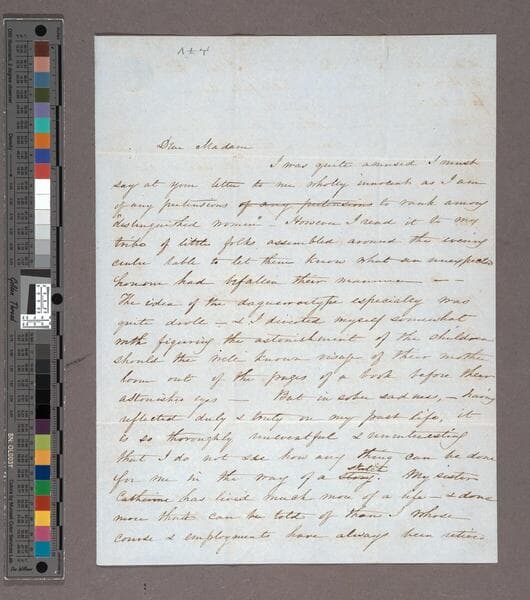 Dear Madam
I was quite amused I must
say at your letter to me wholly innocent as I am
of any pretensions of any pretensions to rank among
"distinguished women" — However I read it to my
tribe of little folks assembled around the evening
centre table to let them know what an unexpected
honour had befallen their mamma — —
The idea of the daguerreotype especially was
quite droll — & I diverted myself somewhat
with figuring the astonishment of the children
should the well known visage of their mother
loom out of the pages of a book before their
astonished eyes — But in sober sadness, — having
reflected duly & truly on my past life, it
is so thoroughly uneventful & uninteresting
that I do not see how any thing can be done
for me in the way of a Story. Sketch My sister
Catherine has lived much more of a life — & done
more that can be told of than I whose
course & employments have always been retired